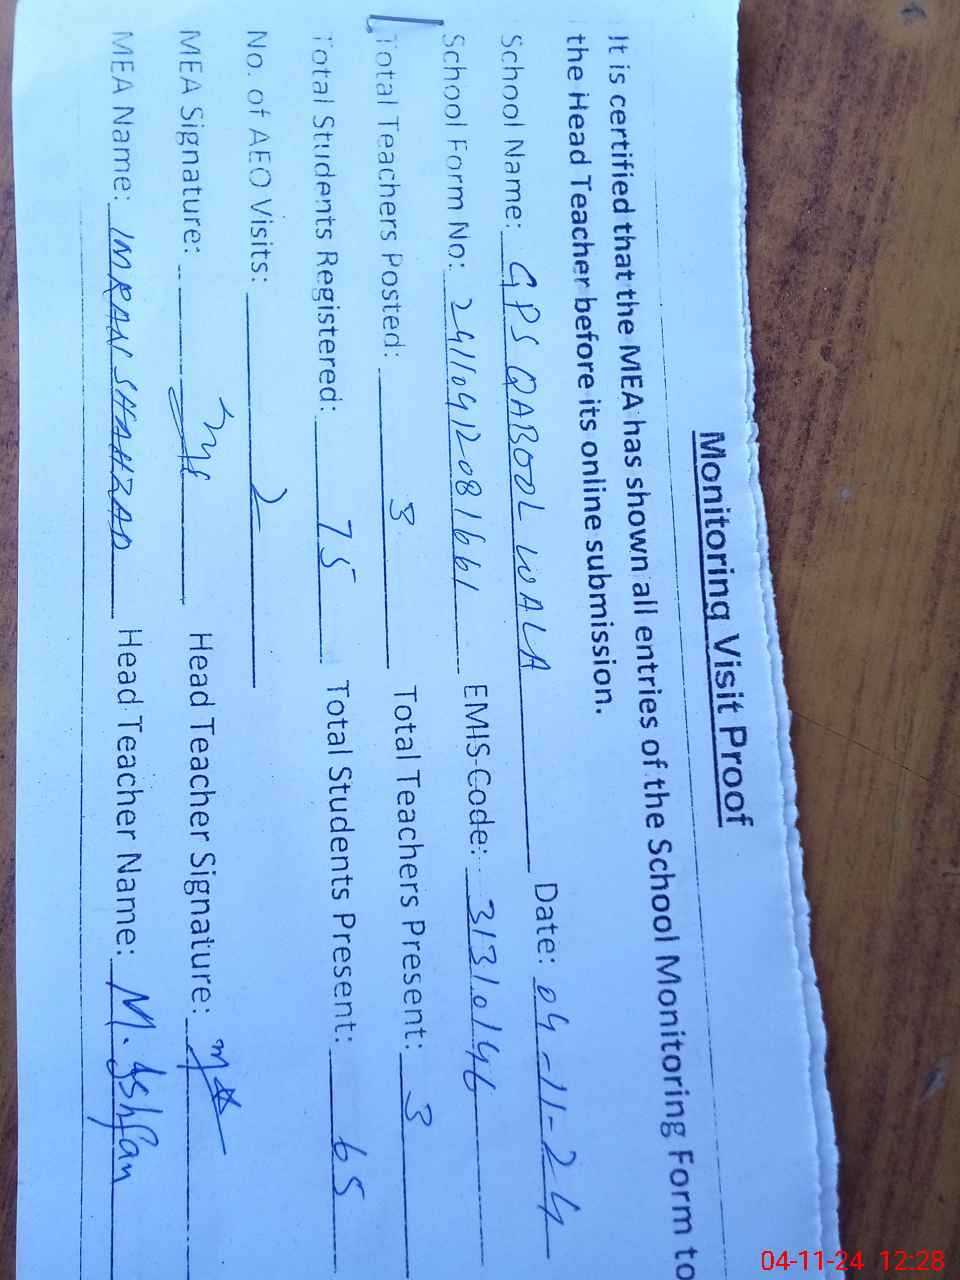 Monitoring Visit Proof
It is certified that the MEA has shown all entries of the School Monitoring Form to
the Head Teacher before its online submission.
School Name: GPS QABOOL WALA Date: 04-11-24
School Form No: 24110412081661 EMIS-Code: 31310146
Total Teachers Posted: 3 Total Teachers Present: 3
Total Students Registered: 75 Total Students Present: 65
No. of AEO Visits: 2
MEA Signature: Head Teacher Signature:
MEA Name: IMRAN SHAHZAD Head Teacher Name: M.
04-11-24 12:28